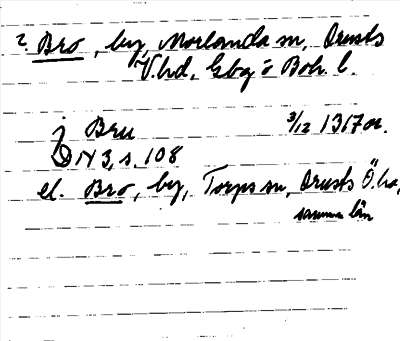 2. Bro, by, Morlanda sn, Orusts
V. hd, Gbg o Boh. l.
j Bru 3/12 1317 or.
DN 3, s. 108
el. Bro, by, Torps sn, Orusts Ö. hd,
samma län